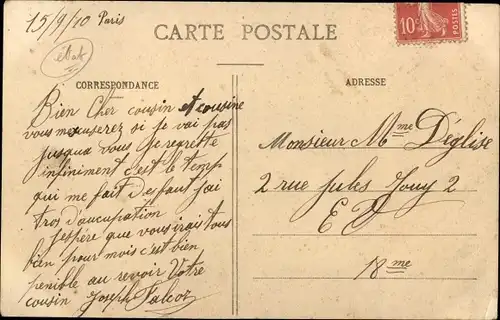 15/9/10 Paris
CARTE POSTALE
10c POSTES
CORRESPONDANCE
ADRESSE
Bien cher cousin et cousine
vous mexuserez si je vai pas
jusqua vous je regrette
infiniment c'est le temp
qui me fait desfaut jai
tros d'aucupation
j'espère que vous irais tous
bien pour mois c'est bien
penible au revoir Votre
cousin Joseph Falcoz
Monsieur Mme Déglise
2 rue jules Jouy 2
E V
18me